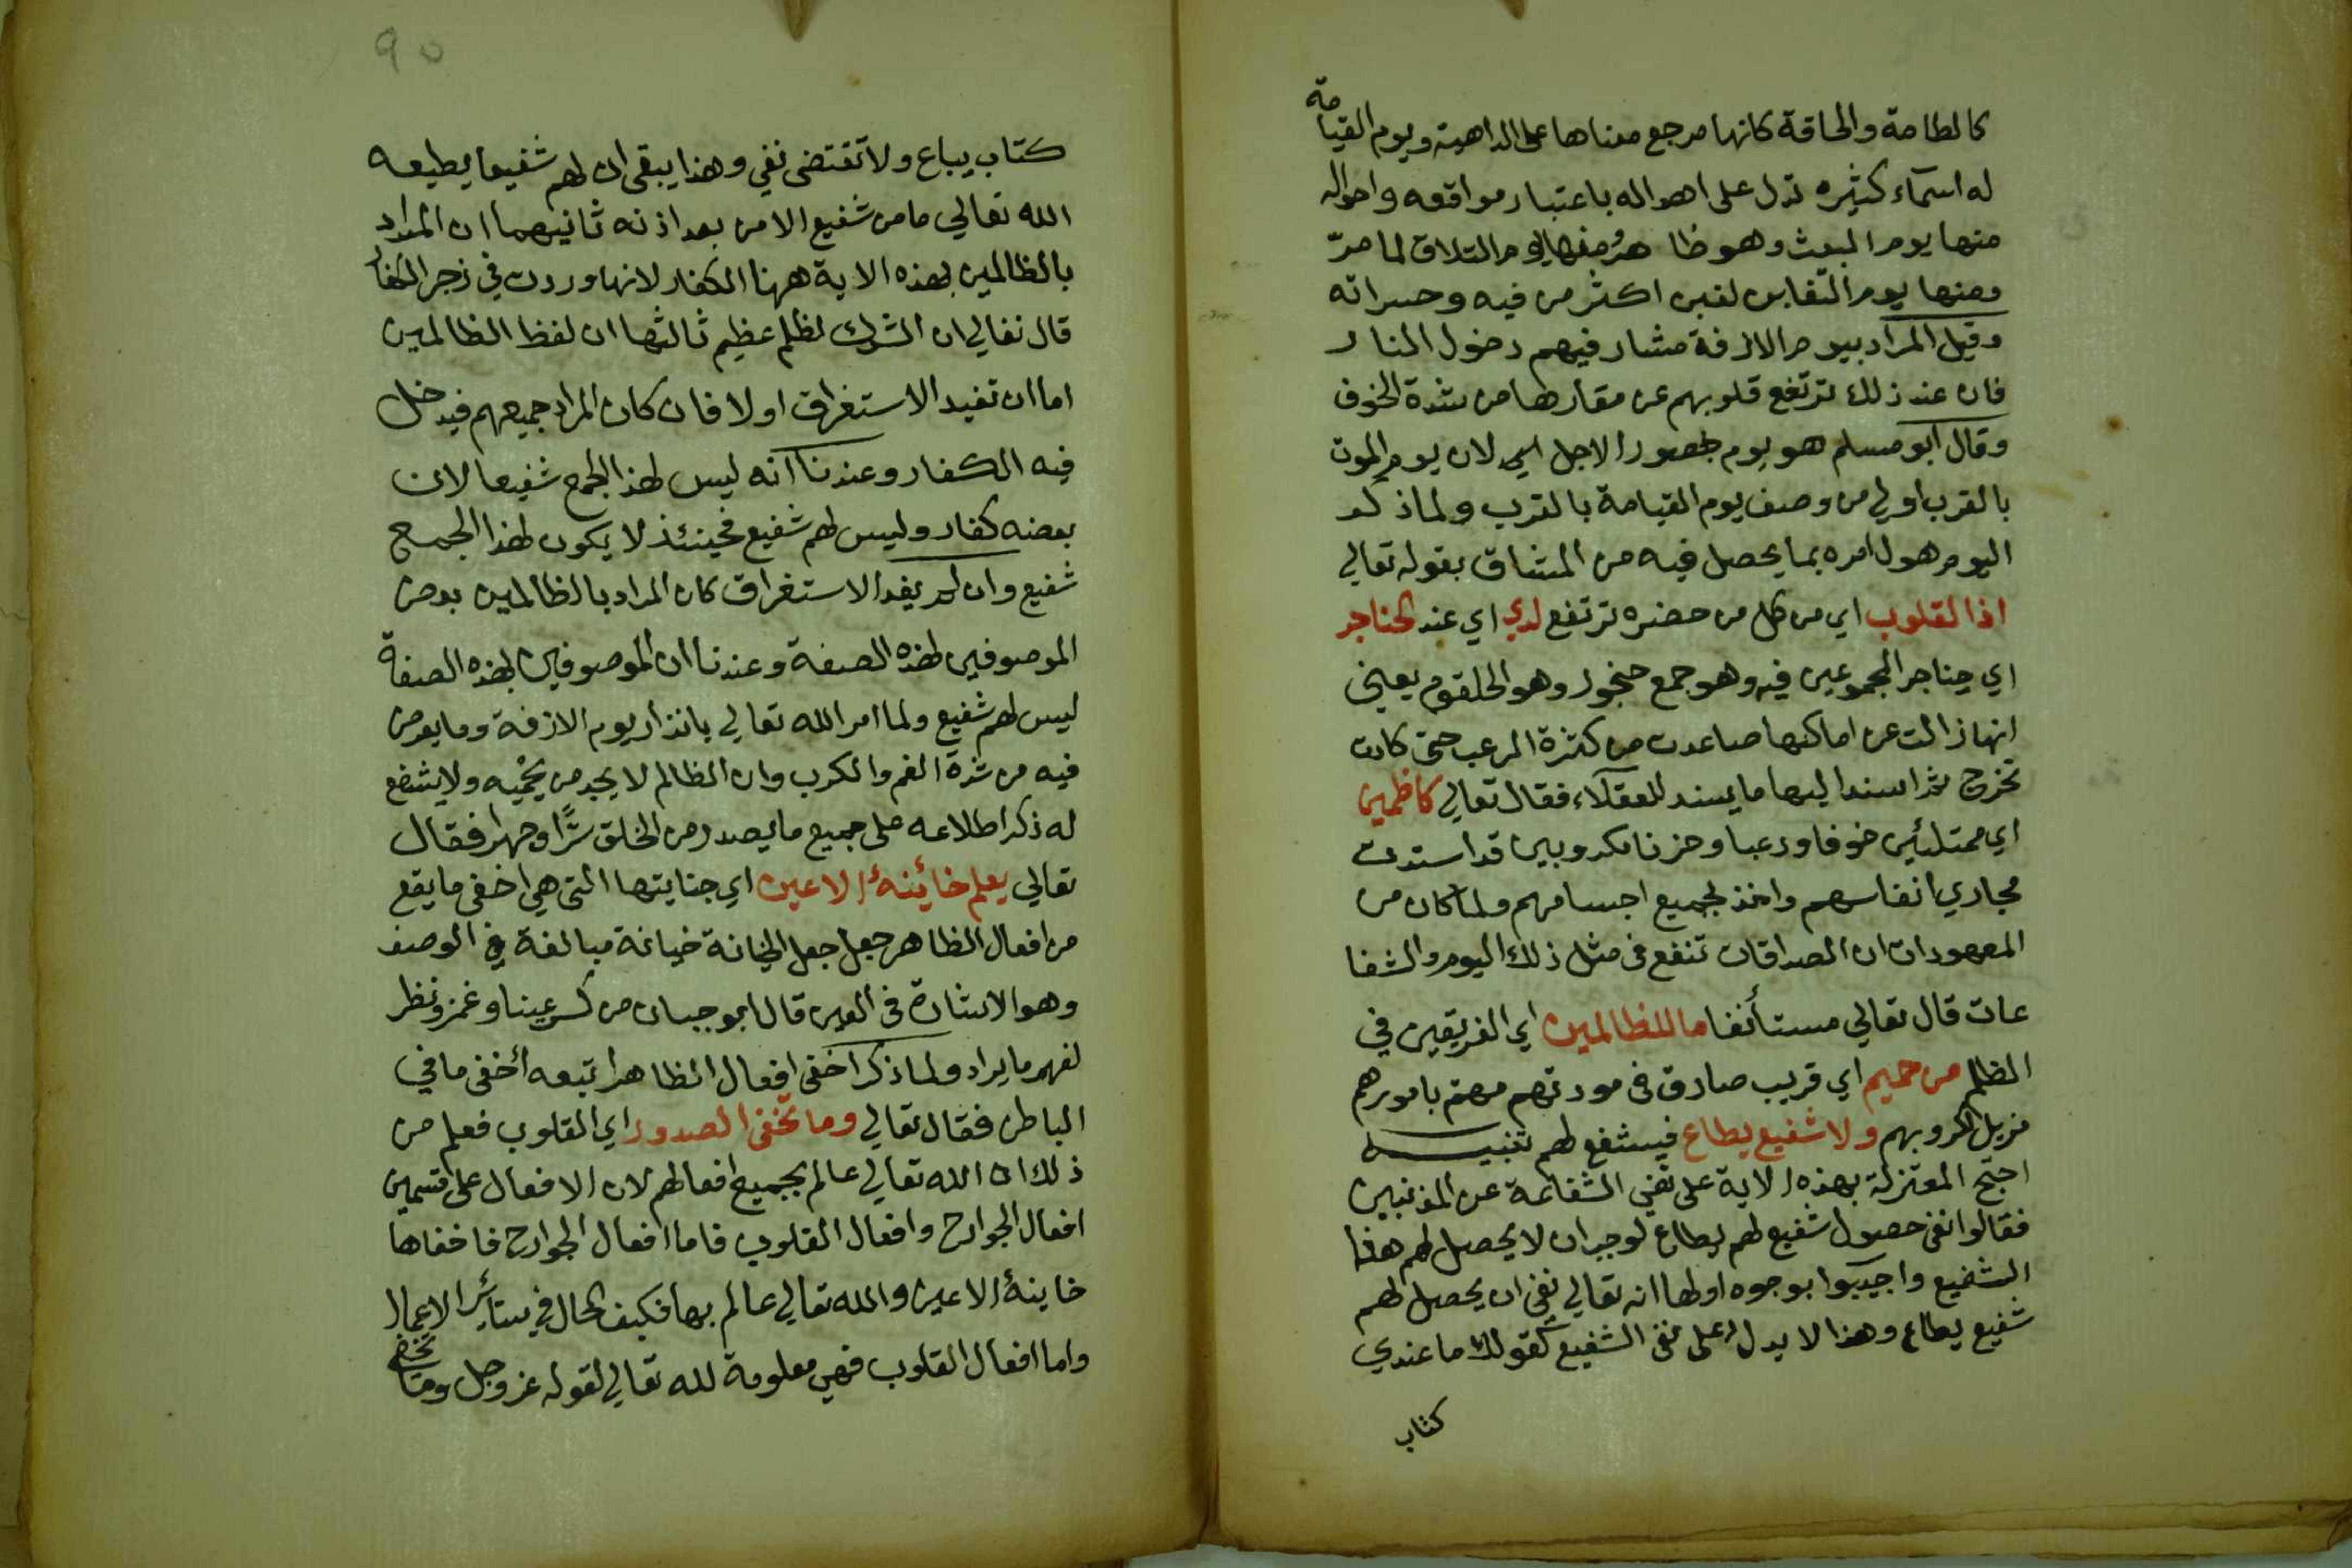 كالطامة والحاقة كانها مرجع معناها على الداهية ويوم القيامة
له اسمآء كثيره تدل على اهواله باعتبار مواقعه واحواله
منها يوم البعث وهو ظاهر ومنها يوم التلاق لما مرّ
ومنها يوم التغابن لغبن اكثر من فيه وحسراته
وقيل المراد بيوم الازفة مشارفتهم دخول النار
فان عند ذلك ترتفع قلوبهم عن مقارها من شدة الخوف
وقال ابو مسلم هو يوم حضور الاجل اي لان يوم الموت
بالقرب اولي من وصف يوم القيامة بالقرب ولما ذكر
اليوم هول امره بما يحصل فيه من المشاق بقوله تعالي
اذا القلوب اي من كل من حضره ترتفع لدي اي عند الحناجر
اي حناجر المجموعين فيه وهو جمع حنجور وهو الحلقوم يعني
انها زالت عن اماكنها صاعدت من كثرة الرعب حتى كادت
تخرج ثم اسند اليها ما يسند للعقلاء فقال تعالي كاظمين
اي ممتلئين خوفا ورعبا وحزنا مكروبين قد استدت
مجاري انفاسهم واخذ بجميع اجسامهم ولما كان من
المعهودات ان الصداقات تنفع في مثل ذلك اليوم والشفا
عات قال تعالي مستأنفا ما للظالمين اي الغريقين في
الظلم من حميم اي قريب صادق في مودتهم مهتم بامورهم
مزيل لكروبهم ولا شفيع يطاع فيشفع لهم تنبيه
احتج المعتزلة بهذه الاية على نفي الشفاعة عن المذنبين
فقالوا نفى حصول شفيع لهم يطاع لوجب ان لا يحصل لهم هذا
الشفيع واجيبوا بوجوه اولها انه تعالي نفى ان يحصل لهم
شفيع يطاع وهذا لا يدل على نفى الشفيع كقولك ما عندي
كتاب
٩٥
كتاب يباع ولا تقتضى نفي وهذا يبقى ان لهم شفيعا يطيعه
الله تعالي ما من شفيع الا من بعد اذنه ثانيهما ان المراد
بالظالمين بهذه الاية ههنا الكفار لانها وردت في زجر الكفار
قال تعالي ان الشرك لظلم عظيم ثالثها ان لفظ الظالمين
اما ان تفيد الاستغراق اولا فان كان المراد جميعهم فيدخل
فيه الكفار وعندنا انه ليس لهذا الجمع شفيعا لان
بعضه كفار وليس لهم شفيع فحينئذ لا يكون لهذا الجمع
شفيع وان لم يفد الاستغراق كان المراد بالظالمين بعض
الموصوفين بهذه الصفة وعندنا ان الموصوفين بهذه الصفة
ليس لهم شفيع ولما امر الله تعالي بانذار يوم الازفة وما يعرض
فيه من شدة الغم والكرب وان الظالم لا يجد من يحميه ولا يشفع
له ذكر اطلاعه على جميع ما يصدر من الخلق سرًّا وجهرا فقال
تعالي يعلم خائنة الاعين اي جنايتها التى هي اخفى ما يقع
من افعال الظاهر جعل جعل الخيانة خيانة مبالغة في الوصف
وهو الاشارة فى العين قال ابو حيان من كسر عينا وغمز ونظر
لفهم ما يراد ولما ذكر اخفى افعال الظاهر اتبعه أخفى ما في
الباطن فقال تعالي وما تخفى الصدور اي القلوب فعلم من
ذلك ان الله تعالي عالم بجميع افعالهم لان الافعال على قسمين
افعال الجوارح وافعال القلوب فاما افعال الجوارح فاخفاها
خاينة الاعين والله تعالي عالم بها فكيف الحال في سائر الاعمال
واما افعال القلوب فهي معلومة لله تعالي لقوله عز وجل وما تخفي